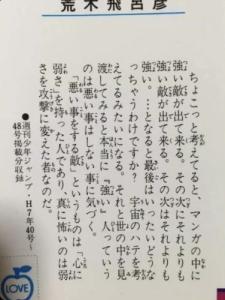 荒木飛呂彦
ちょこっと考えてると、マンガの中に
強い敵が出て来る。その次にそれよりも
強い敵が出て来る。その次はそれよりも
強い。…となると最後はいったいどうな
っちゃうわけですか? 宇宙のハテを考
えてるみたいになる。それと世の中を見
渡してみると本当に『強い』人っていう
のは悪い事はしない事に気づく。
「悪い事をする敵」というものは「心に
弱さ」を持った人であり、真に怖いのは弱
さを攻撃に変えた者なのだ。
●週刊少年ジャンプ・H7年40号〜
48号掲載分収録
LOVE